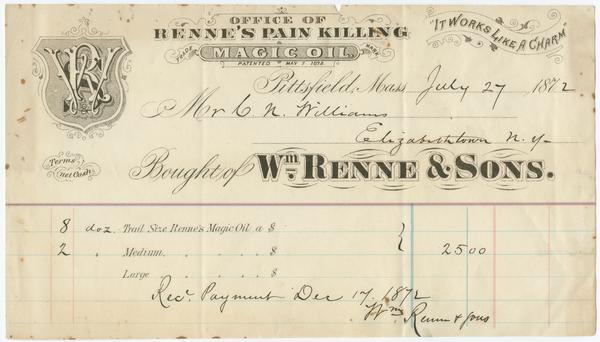 OFFICE OF
RENNE'S PAIN KILLING
TRADE MARK
MAGIC OIL.
PATENTED MAY 7. 1872.
"IT WORKS LIKE A CHARM"
WR
Pittsfield, Mass. July 27 1872
Mr C. N. Williams
Elizabethtown N.Y.
Terms
Net Cash
Bought of Wm. RENNE & SONS.
8 doz. Trail Size Renne's Magic Oil a $
2 " Medium, " " " $ } 25 00
Large " " " $
Rec. Payment Dec 17, 1872
Wm Renne & Sons